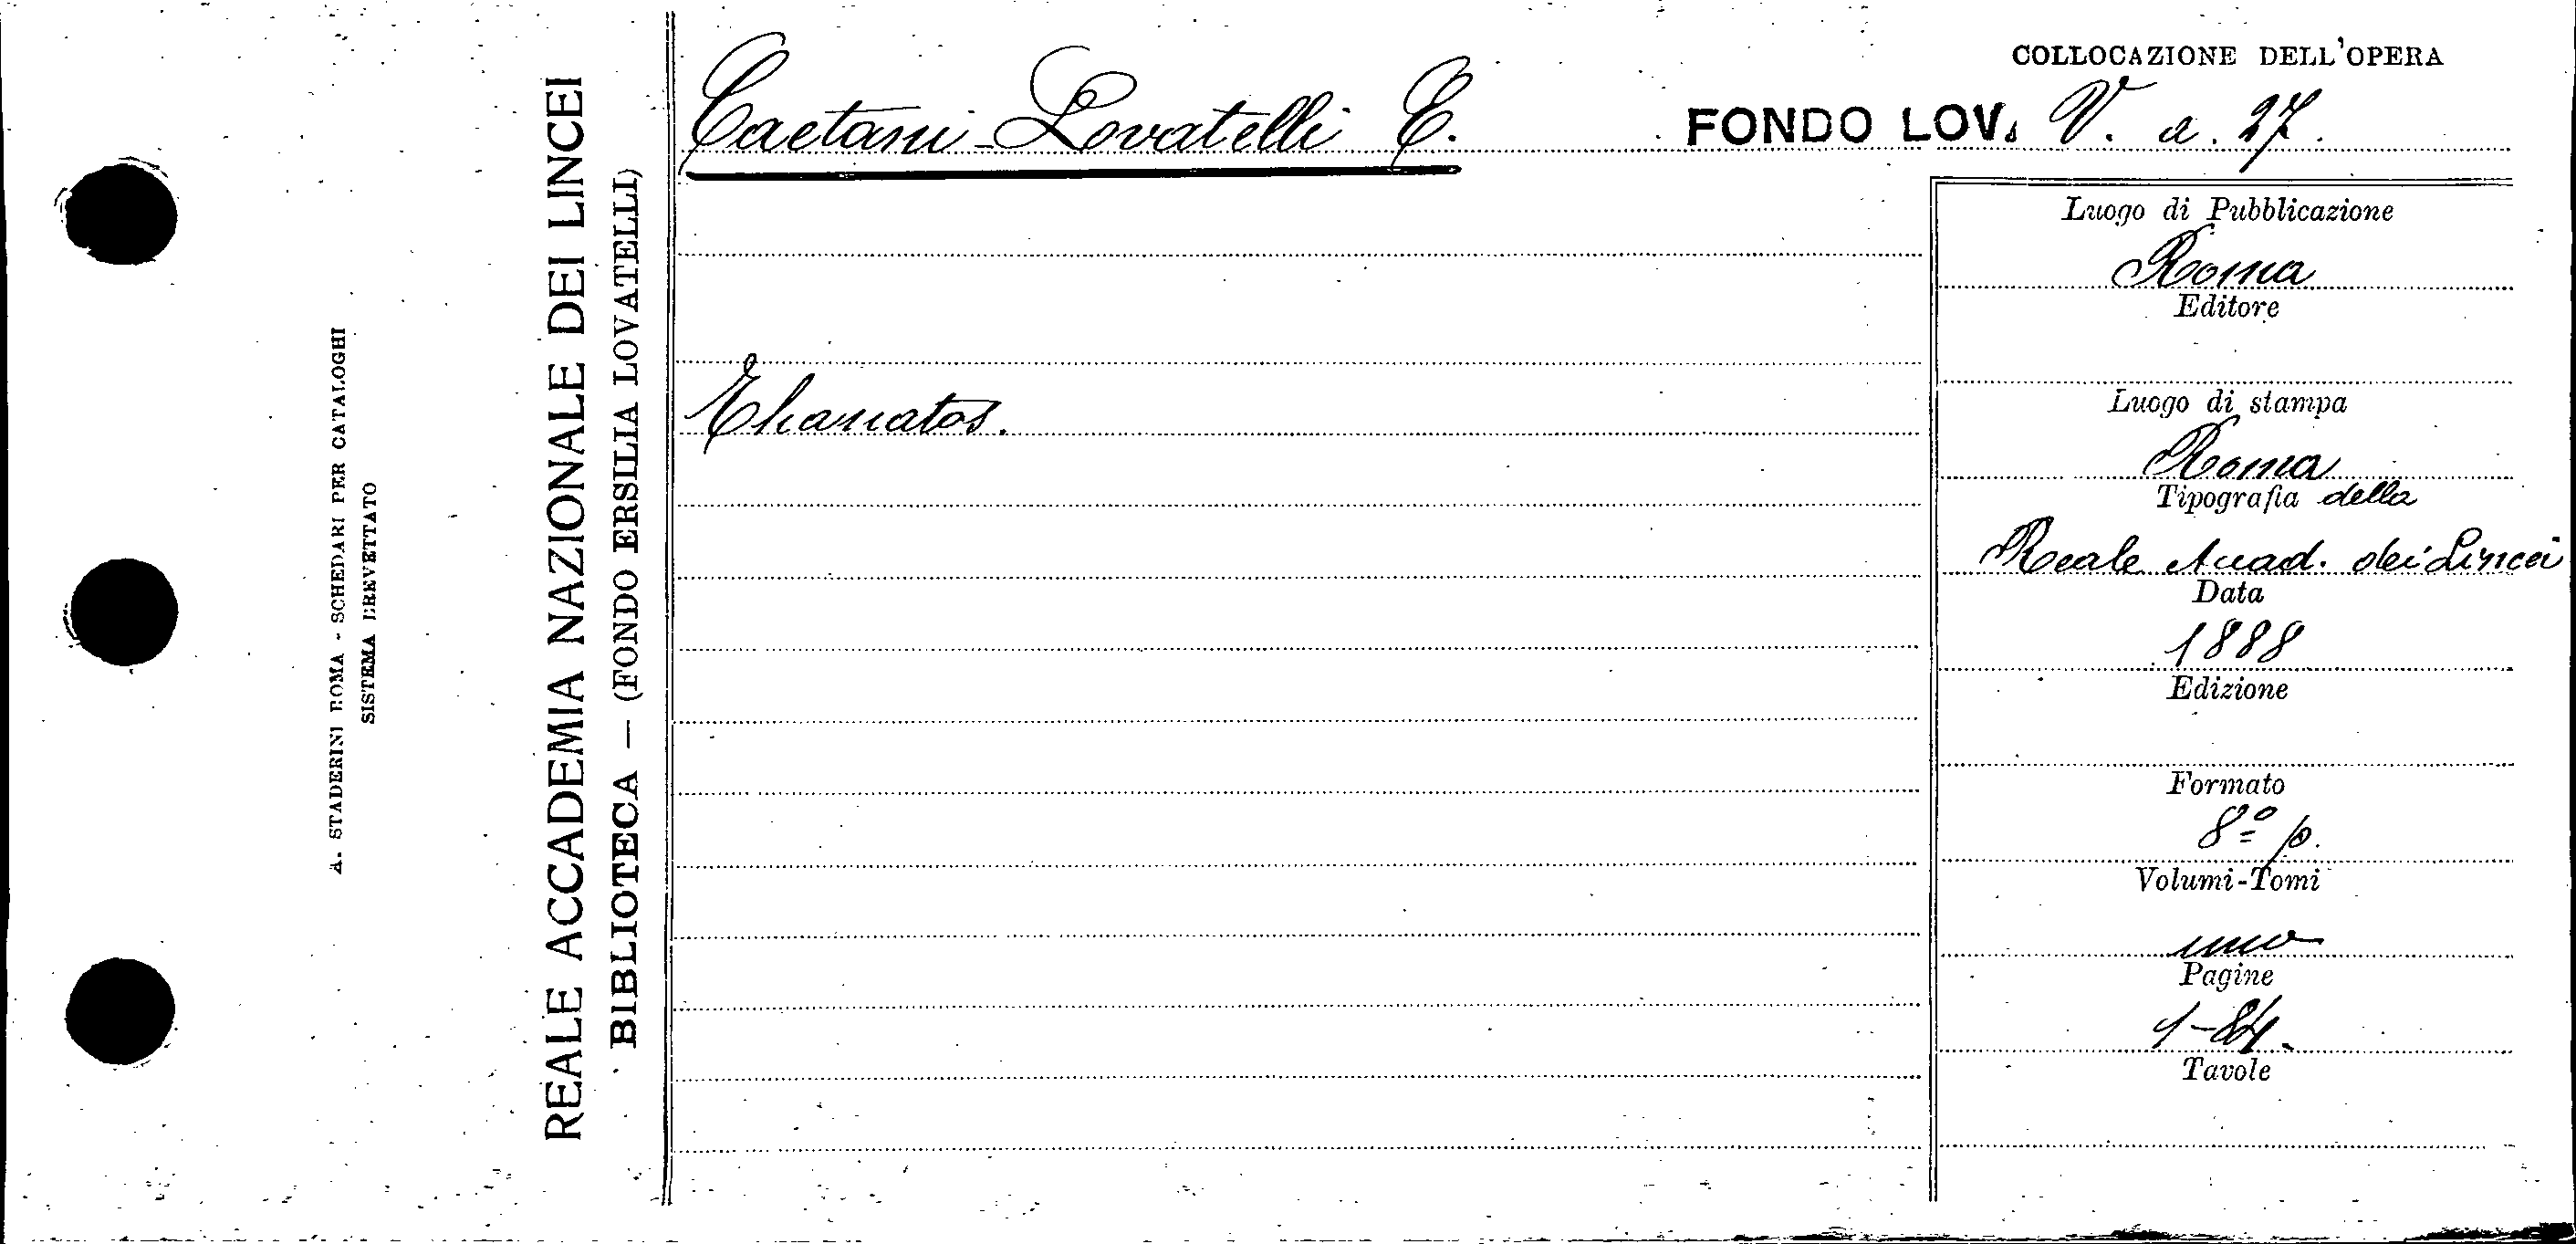 A. STADERINI ROMA - SCHEDARI PER CATALOGHI
SISTEMA BREVETTATO
REALE ACCADEMIA NAZIONALE DEI LINCEI
BIBLIOTECA — (FONDO ERSILIA LOVATELLI)
Caetani-Lovatelli E.
Thanatos.
COLLOCAZIONE DELL'OPERA
FONDO LOV. V. a. 27.
Luogo di Pubblicazione
Roma
Editore
Luogo di stampa
Roma
Tipografia della
Reale Accad. dei Lincei
Data
1888
Edizione
Formato
8º p.
Volumi-Tomi
uno
Pagine
1-84.
Tavole